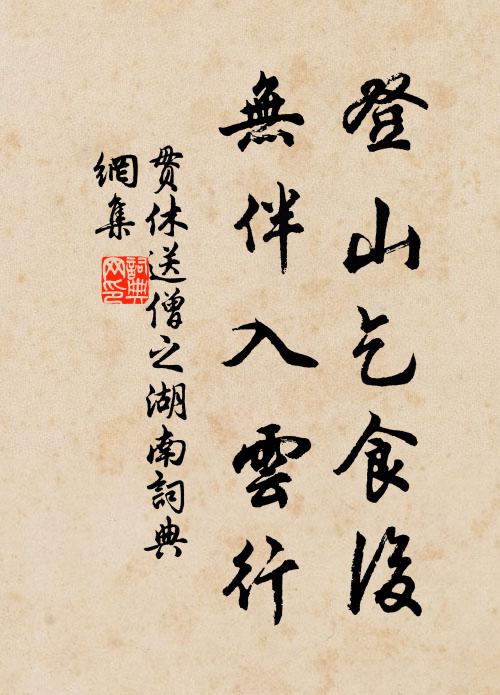 登山乞食後
無伴入雲行
貫休送僧之湖南詞典
網集
詞典
网印